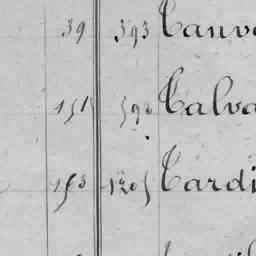 39 393 Tanv
151 590 Talva
153 1205 Tardi